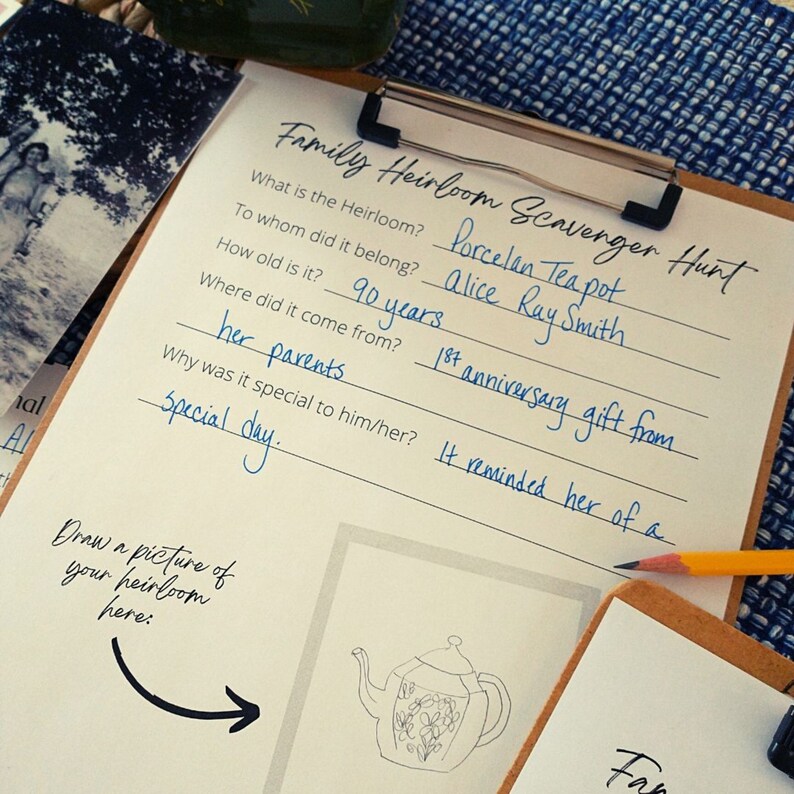 Family Heirloom Scavenger Hunt
What is the Heirloom? Porcelan Teapot
To whom did it belong? Alice Ray Smith
How old is it? 90 years
Where did it come from? 1st anniversary gift from
her parents
Why was it special to him/her? It reminded her of a
special day.
Draw a picture of
your heirloom
here: